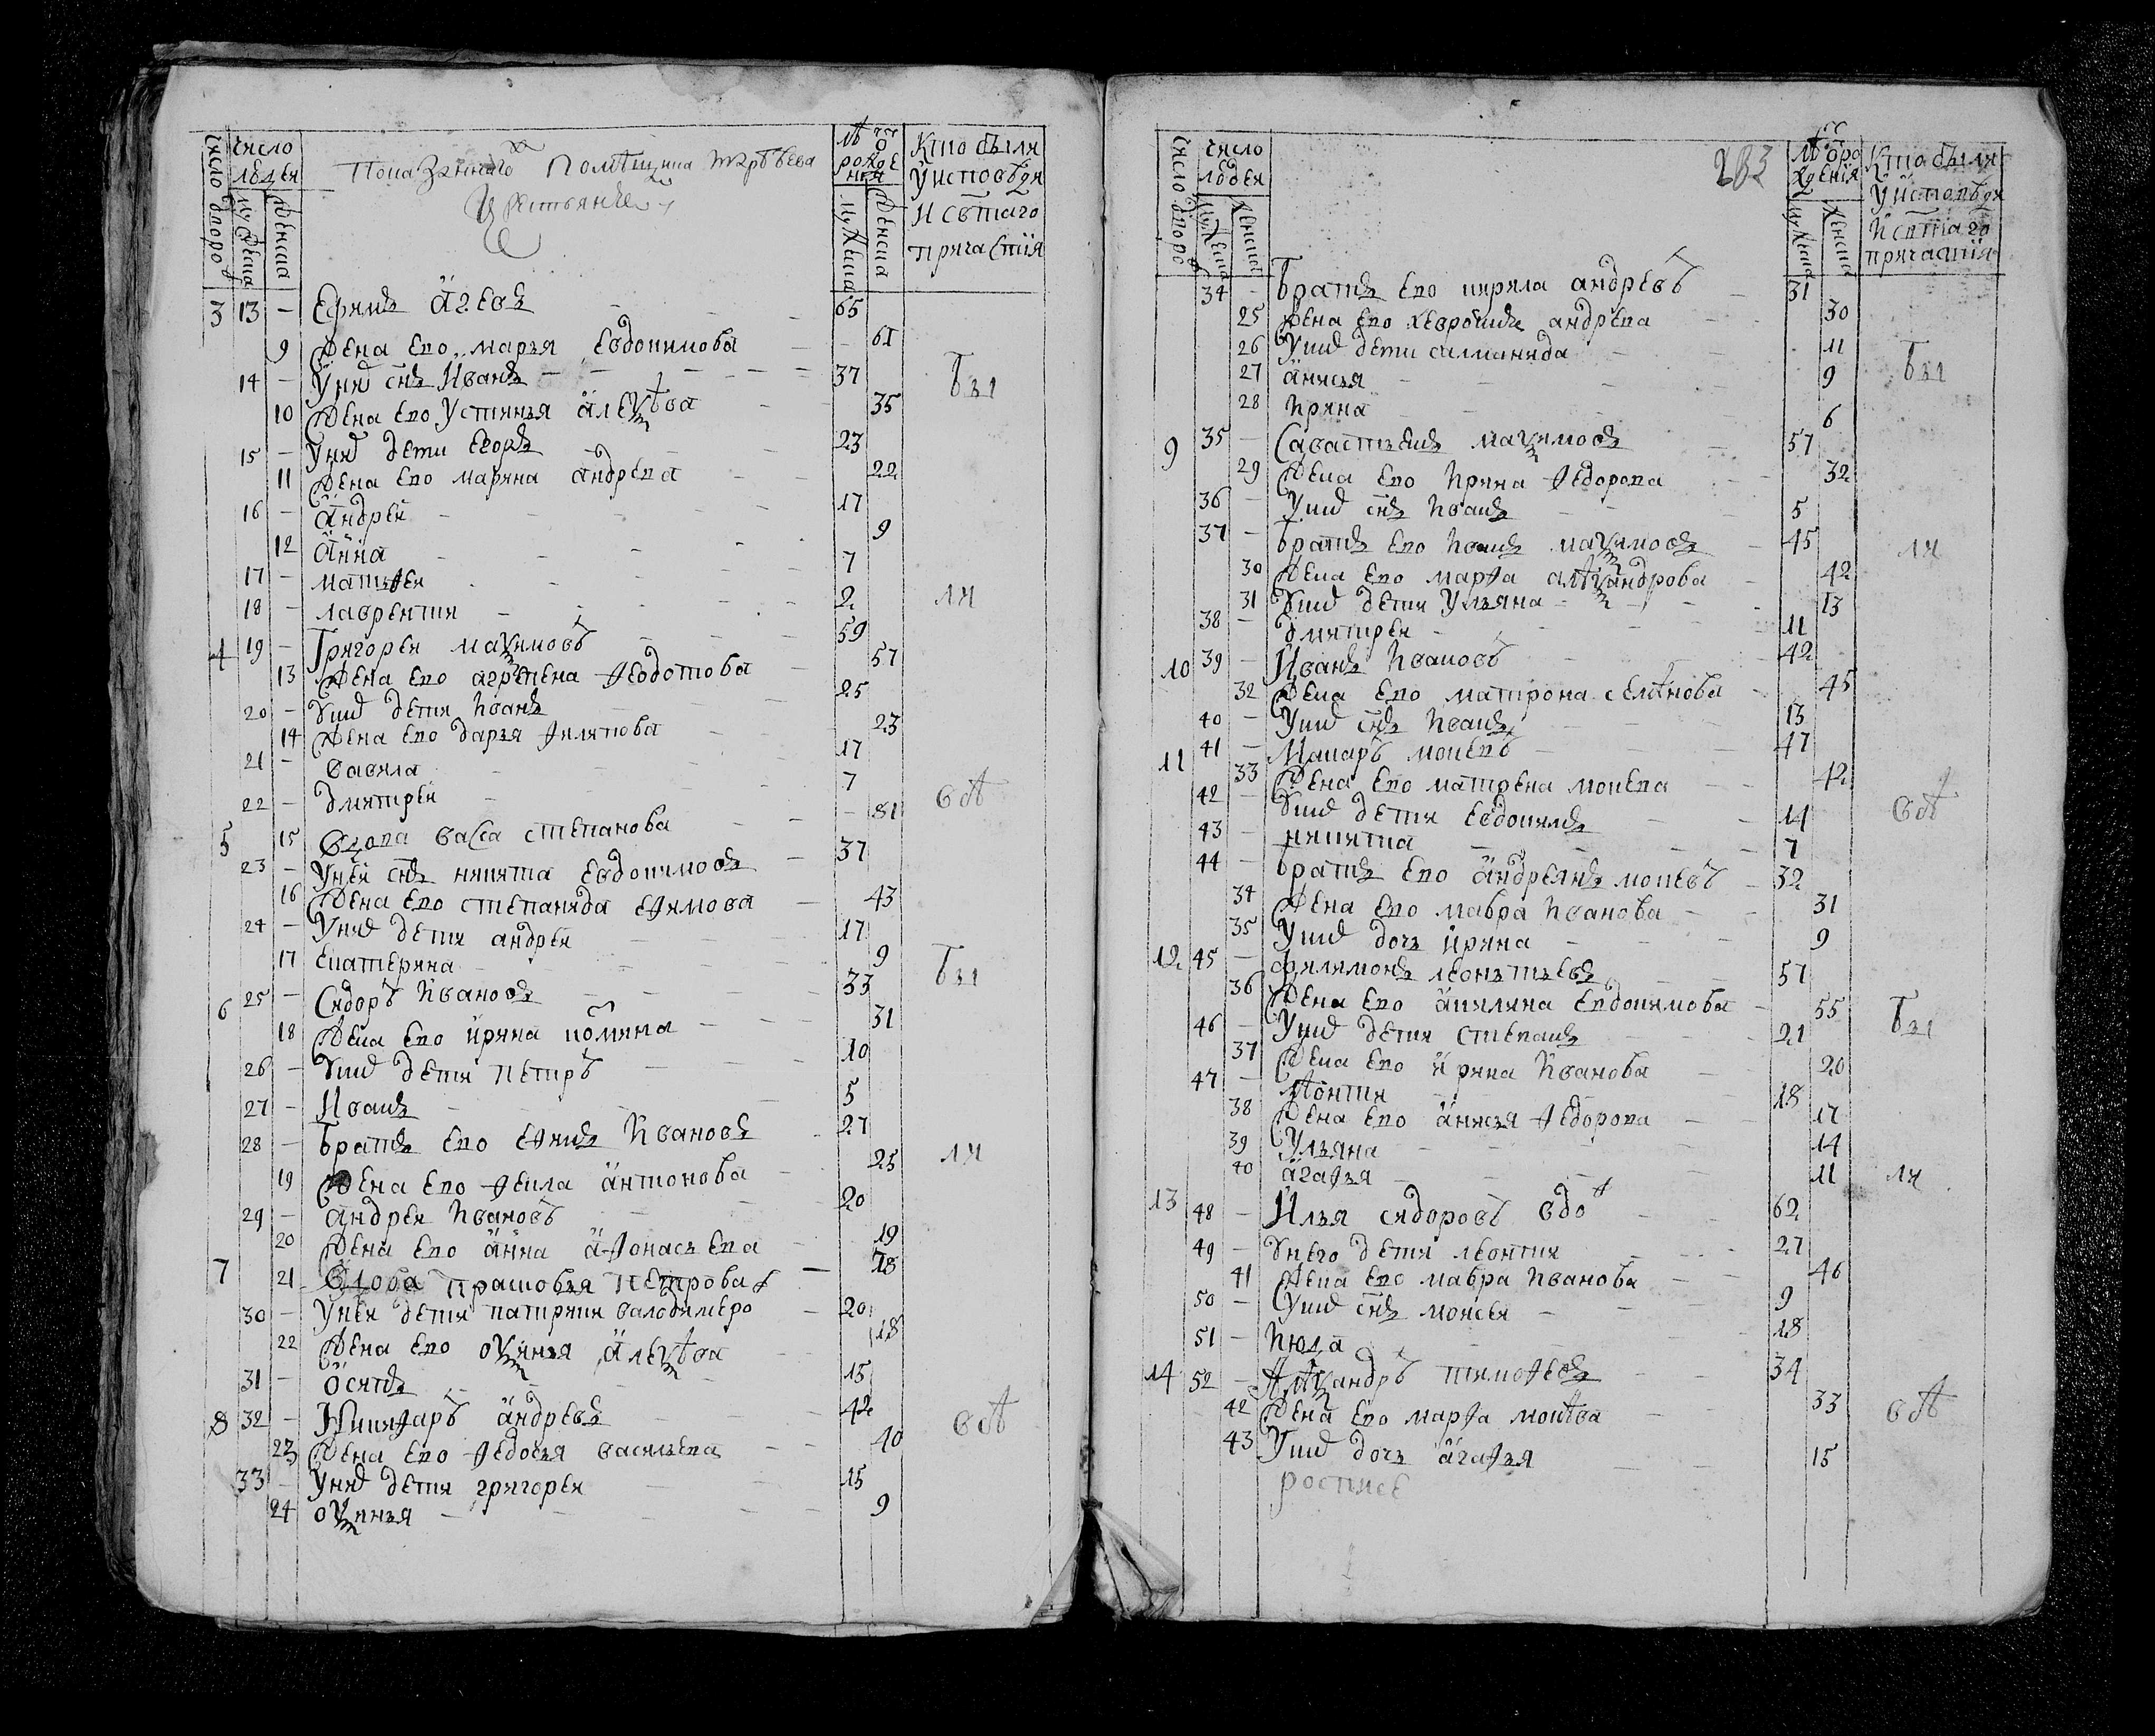 число дворо
число людей
мужеска
женска
Помѣщика
крестьяне
лѣ ѿ рожде ния
мужеска
женска
Кто были у исповеди и сѣтаго причастия
3 13 – Ефимъ Агеевъ 65
9 Жена его марья Евдокимова 61
14 – У нихъ снъ Иванъ 37
10 Жена его Устинья алеѯѣва 35
15 – У нихъ дети егоръ 23
11 Жена его марина андреева 22
16 – андреи 17
12 Анна 9
17 – матѳеи 7
18 – лаврентии 2
4 19 – Григореи маѯимовъ 59
13 Жена его агрепена ѳедотова 57
20 – У нихъ дети иванъ 25
14 Жена его дарья ѳилипова 23
21 – вавила 17
22 – дмитреи 7
5 15 Вдова васса степанова 81
23 – У неи снъ никита Евдокимовъ 37
16 Жена его степанида еѳимова 43
24 – У нихъ дети андреи 17
17 Екатерина 9
6 25 – Сидоръ Ивановъ 33
18 Жена его ирина 31
26 – У нихъ дети петръ 10
27 – Иванъ 5
28 – Братъ его Иванов 27
19 Жена его ѳекла антонова 25
29 – андреи Ивановъ 20
20 Жена его анна аѳонасьева 19
7 21 Вдова прасковья петрова
30 – У неи дети патрикии 20
22 Жена его оѯинья алеѯѣва 18
31 – Осипъ 15
8 32 – Никиѳаръ андреевъ 42
23 Жена его ѳедосья васильева 40
33 – У нихъ дети григореи 15
24 оѯинья 9
бы
ли
всѣ
бы
ли
всѣ
283
число дворо
число людеи
мужеска
женска
лѣ ѿ ро ждения
мужеска
женска
Кто были у исповеди и сѣтаго причастия
34 – Братъ его кирила андреевъ 31
25 Жена его андреева 30
26 У нихъ дети 11
27 анисья 9
28 Ирина 6
9 35 – Савастьянъ маѯимовъ 57
29 Жена его Ирина ѳедорова 32
36 – У нихъ снъ Иванъ 5
37 – Братъ его Иванъ маѯимовъ 45
30 Жена его марѳа алѣѯандрова 42
31 У нихъ дети Ульяна 13
38 – дмитреи 11
10 39 – Иванъ Ивановъ 42
32 Жена его матрона семѣнова 45
40 – У нихъ снъ Иванъ 13
11 41 – Макаръ мокеевъ 47
33 Жена его матрена мокеева 42
42 – У нихъ дети евдокимъ 14
43 – никита 7
44 – братъ его андреянъ мокеевъ 32
34 Жена его мавра Иванова 31
35 У нихъ дочь ирина 9
12 45 – филимонъ леонтьевъ 57
36 Жена его акилина Евдокимова 55
46 – У нихъ дети степанъ 21
37 Жена его ирина Иванова 20
47 – лѣонтии 18
38 Жена его анисья ѳедорова 17
39 Ульяна 14
40 агаѳья 11
13 48 – Илья сидоровъ вдо 62
49 – У него дети леонтии 27
41 Жена его мавра Иванова 46
50 – У нихъ снъ моисеи 9
51 – Июда 18
14 52 – Алѣѯандръ тимоѳеевъ 34
42 Жена его марѳа мокѣева 33
43 У нихъ дочь агаѳья 15
бы
ли
всѣ
бы
ли
всѣ